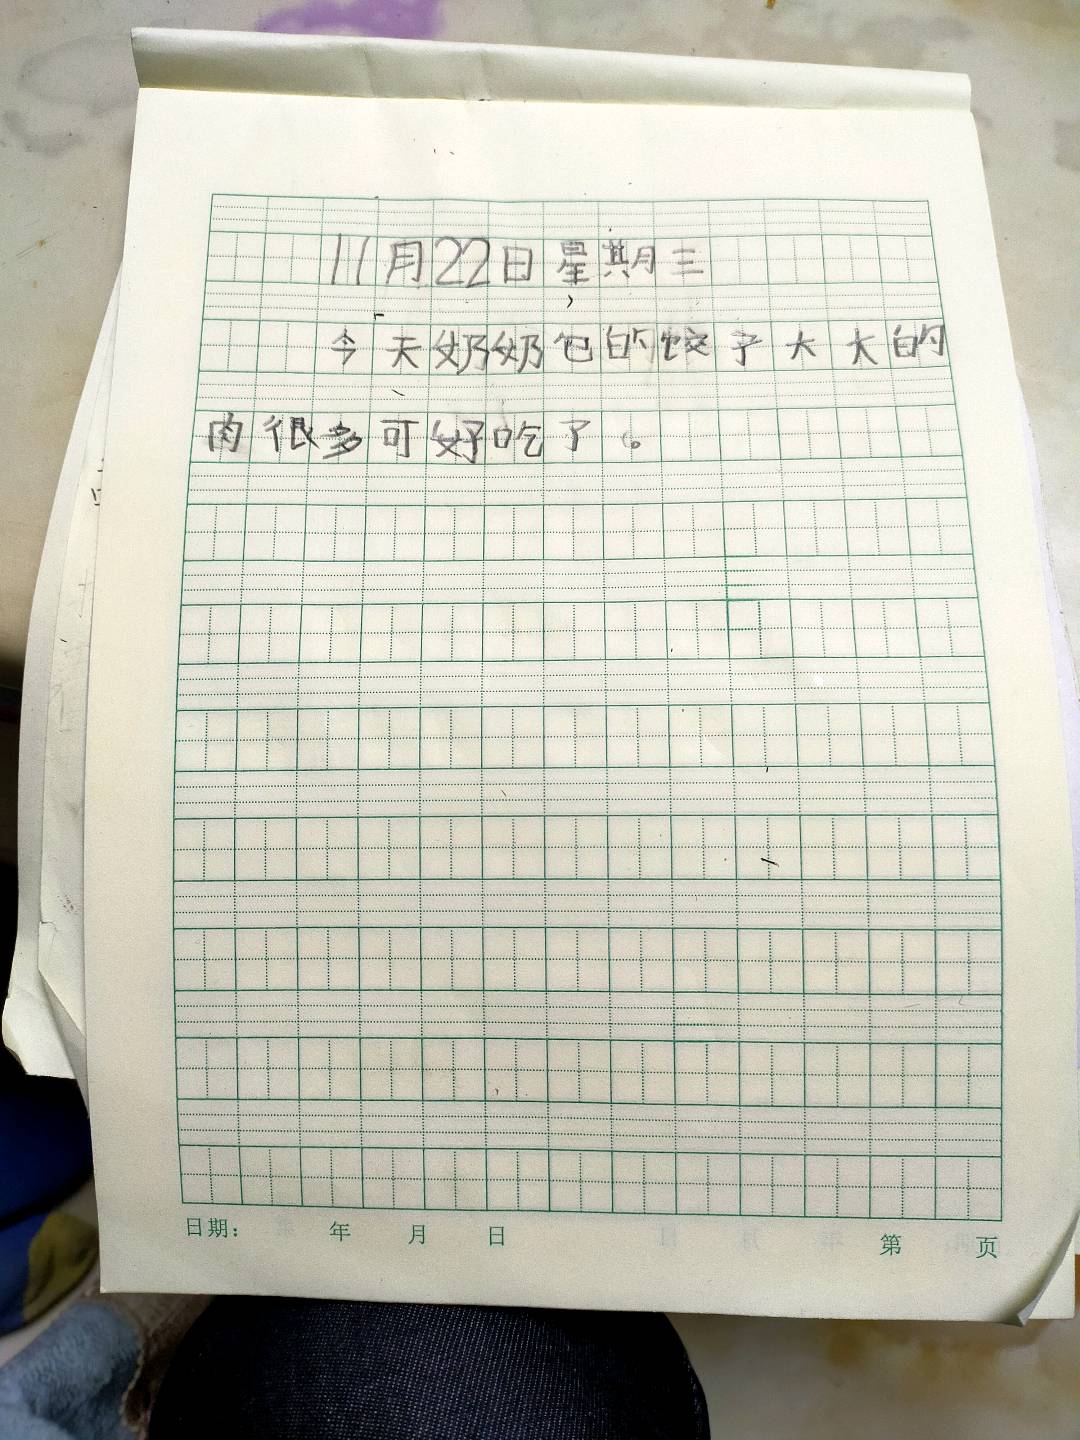 11月22日星期三
今天奶奶包的饺子大大的
肉很多可好吃了。
日期： 年 月 日 第 页